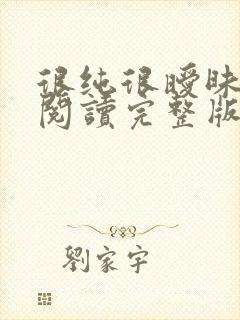 很纯很曖昧
閱讀完整版
劉家宇